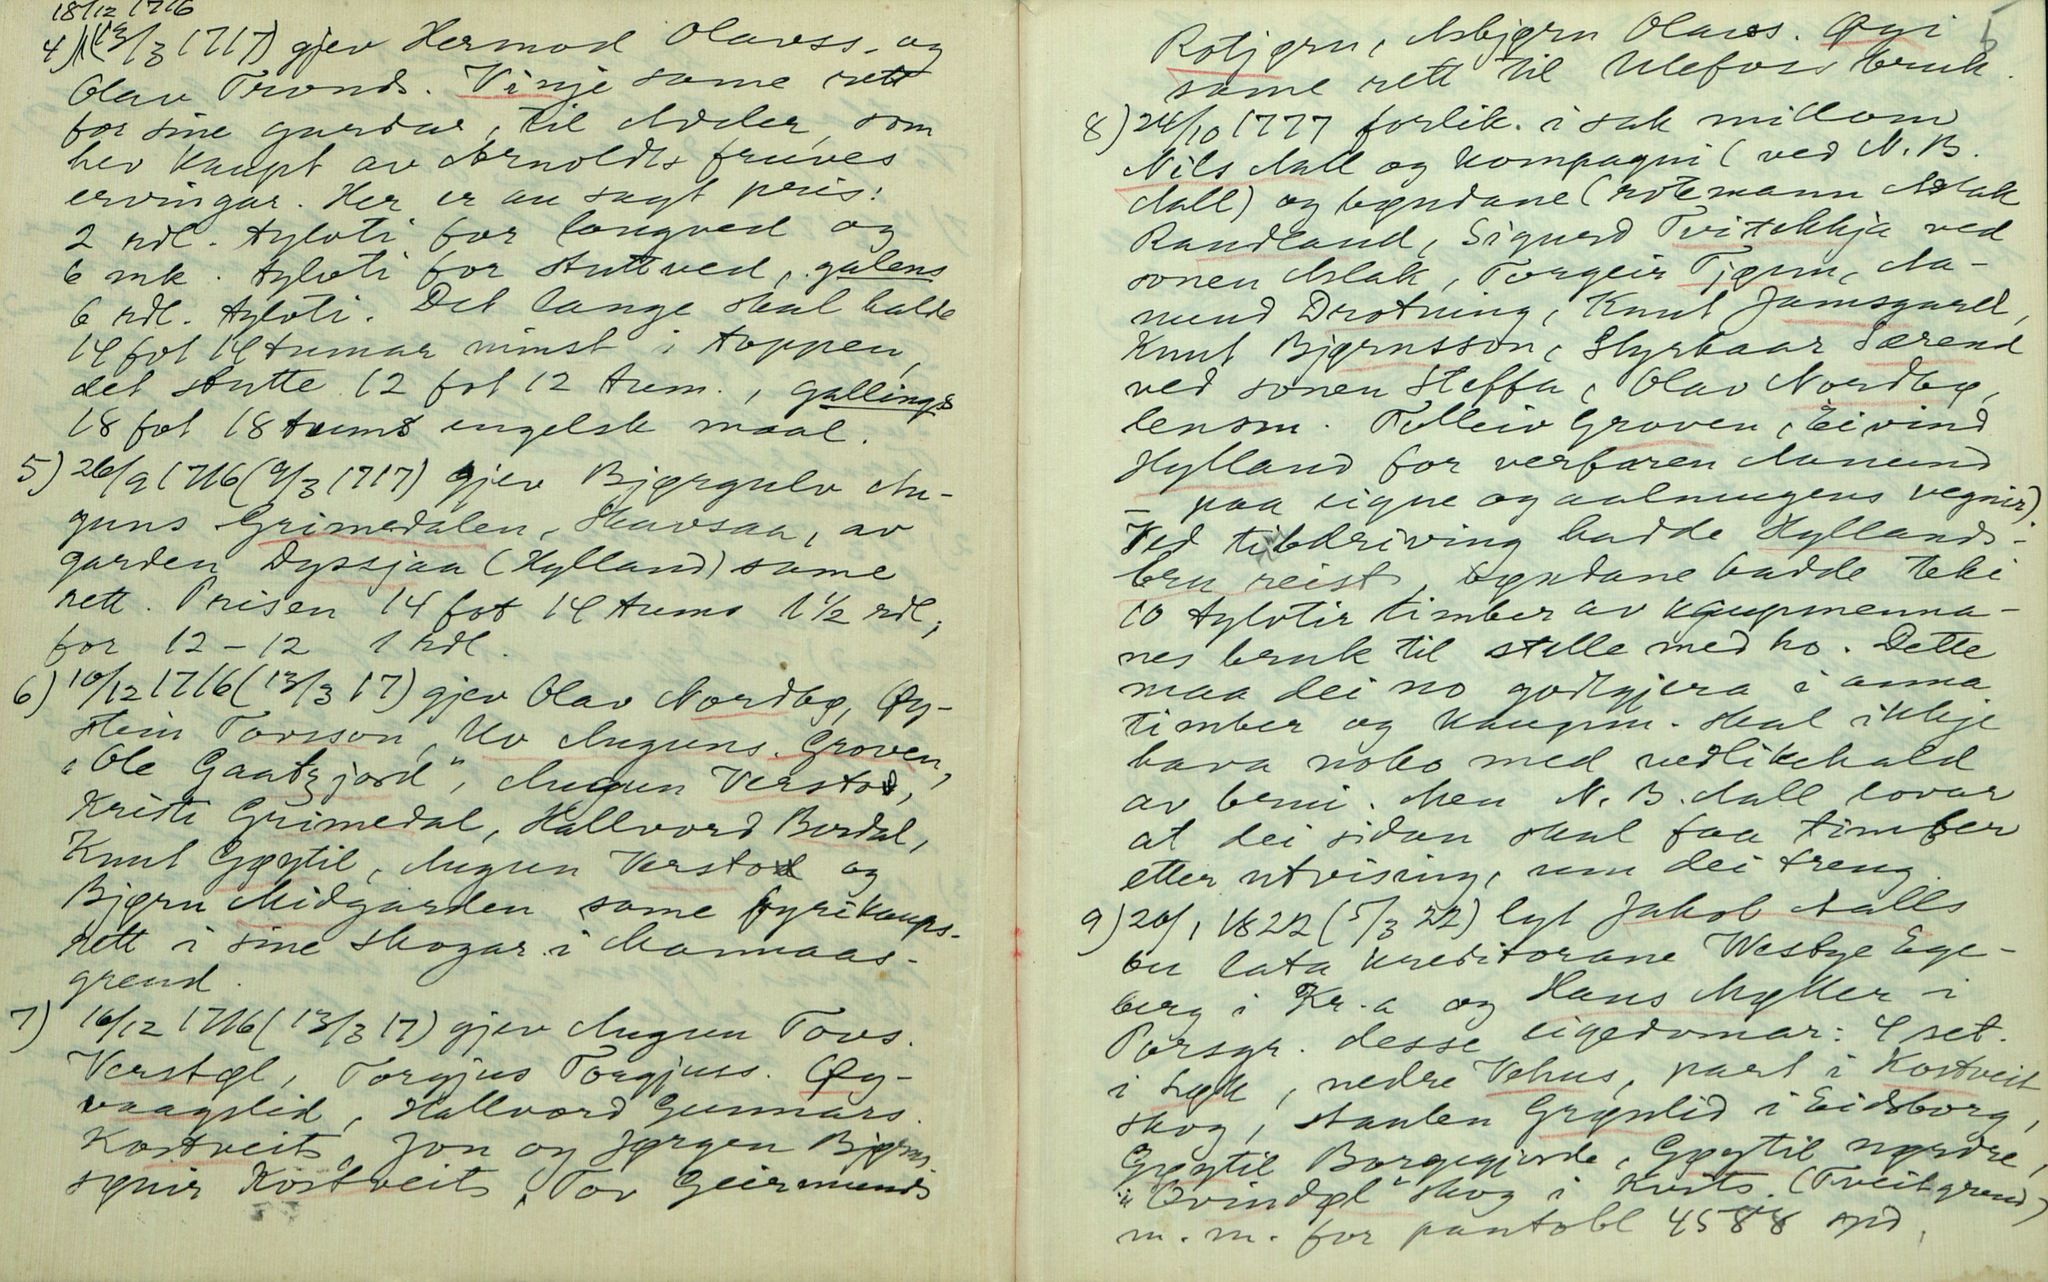 18/12 1716
4) (13/3 1717) gjev Hermod Olavss. og
Olav Tronds. Vinje same rett
for sine gardar, til Adeler, som
hev kaupt av Arnoldts frúves
ervingar. Her er au sagt pris:
2 rdl. tylvti for langved og
6 mk. tylvti for stuttved, galens
6 rdl. tylvti. Det lange skal halde
14 fot 14 tumar minst i toppen,
det stutte 12 fot 12 tum., gallings
18 fot 18 tums engelsk maal.
5) 26/9 1716 (9/3 1717) gjev Bjørgulv Au-
guns. Grimedalen, Skavsaa, av
garden Dyssjaa (Hylland) same
rett. Prisen 14 fot 14 tums 1 1/2 rdl;
for 12 – 12 1 rdl.
6) 10/12 1716 (13/3 17) gjev Olav Nordbø, Øy-
stein Tovsson, Uv Auguns. Groven,
"Ole Gaatzjord", Augun Verstod,
Kristi Grimedal, Hallvord Bordal,
Knut Gøytil, Augun Verstod og
Bjørn Midgarden same fyrikaups-
rett i sine skogar i Mannaas-
grend.
7) 16/12 1716 (13/3 17) gjev Augun Tovs.
Verstøl, Torgjus Torgjuss. Øy-
vaagslid, Hallvord Gunnars.
Kostveit, Jon og Jørgen Bjørns-
sønir Kostveit, Tov Geirmunds
5
Rotjørn, Asbjørn Olavs. Øyi
same rett til Ulefoss bruk.
8) 24/10 1777 forlik i sak millom
Nils Aall og kompagni (ved N. B.
Aall) og bøndane (rotemann Aslak
Randland, Sigurd Tvitekkja ved
sonen Aslak, Torgeir Tjønn, Aa-
mund Drotning, Knut Jamsgard,
Knut Bjørnsson, Styrkaar Særend
ved sonen Steffa, Olav Nordbø,
lensm. Tolleiv Groven, Eivind
Hylland for verfaren Aamund
– paa eigne og aalmugens vegnir)
Ved tilbdriving hadde Hyllands-
bru reist, bøndane hadde teki
10 tylvtir timber av kaupmenna-
nes bruk til stelle med ho. Dette
maa dei no godtgjera i anna
timber og kaupm. skal ikkje
hava noko med vedlikehald
av brui. Men N. B. Aall lovar
at dei sidan skal faa timber
etter utvising, um dei treng.
9) 20/1 1822 (5/3 22) lyt Jakob Aalls
bu lata kreditorane Westye Ege-
berg i Kr.a og Hans Møller i
Porsgr. desse eigedomar: 4 set.
i Løk, nedre Vehus, part i Kostveit
skog, staulen Grønlid i Eidsborg,
Gøytil Borgegjorde, Gøytil nørdre,
"Övindøl" skog i Kvits. (Tveitgrend)
m. m. for pantobl 4588 spd.